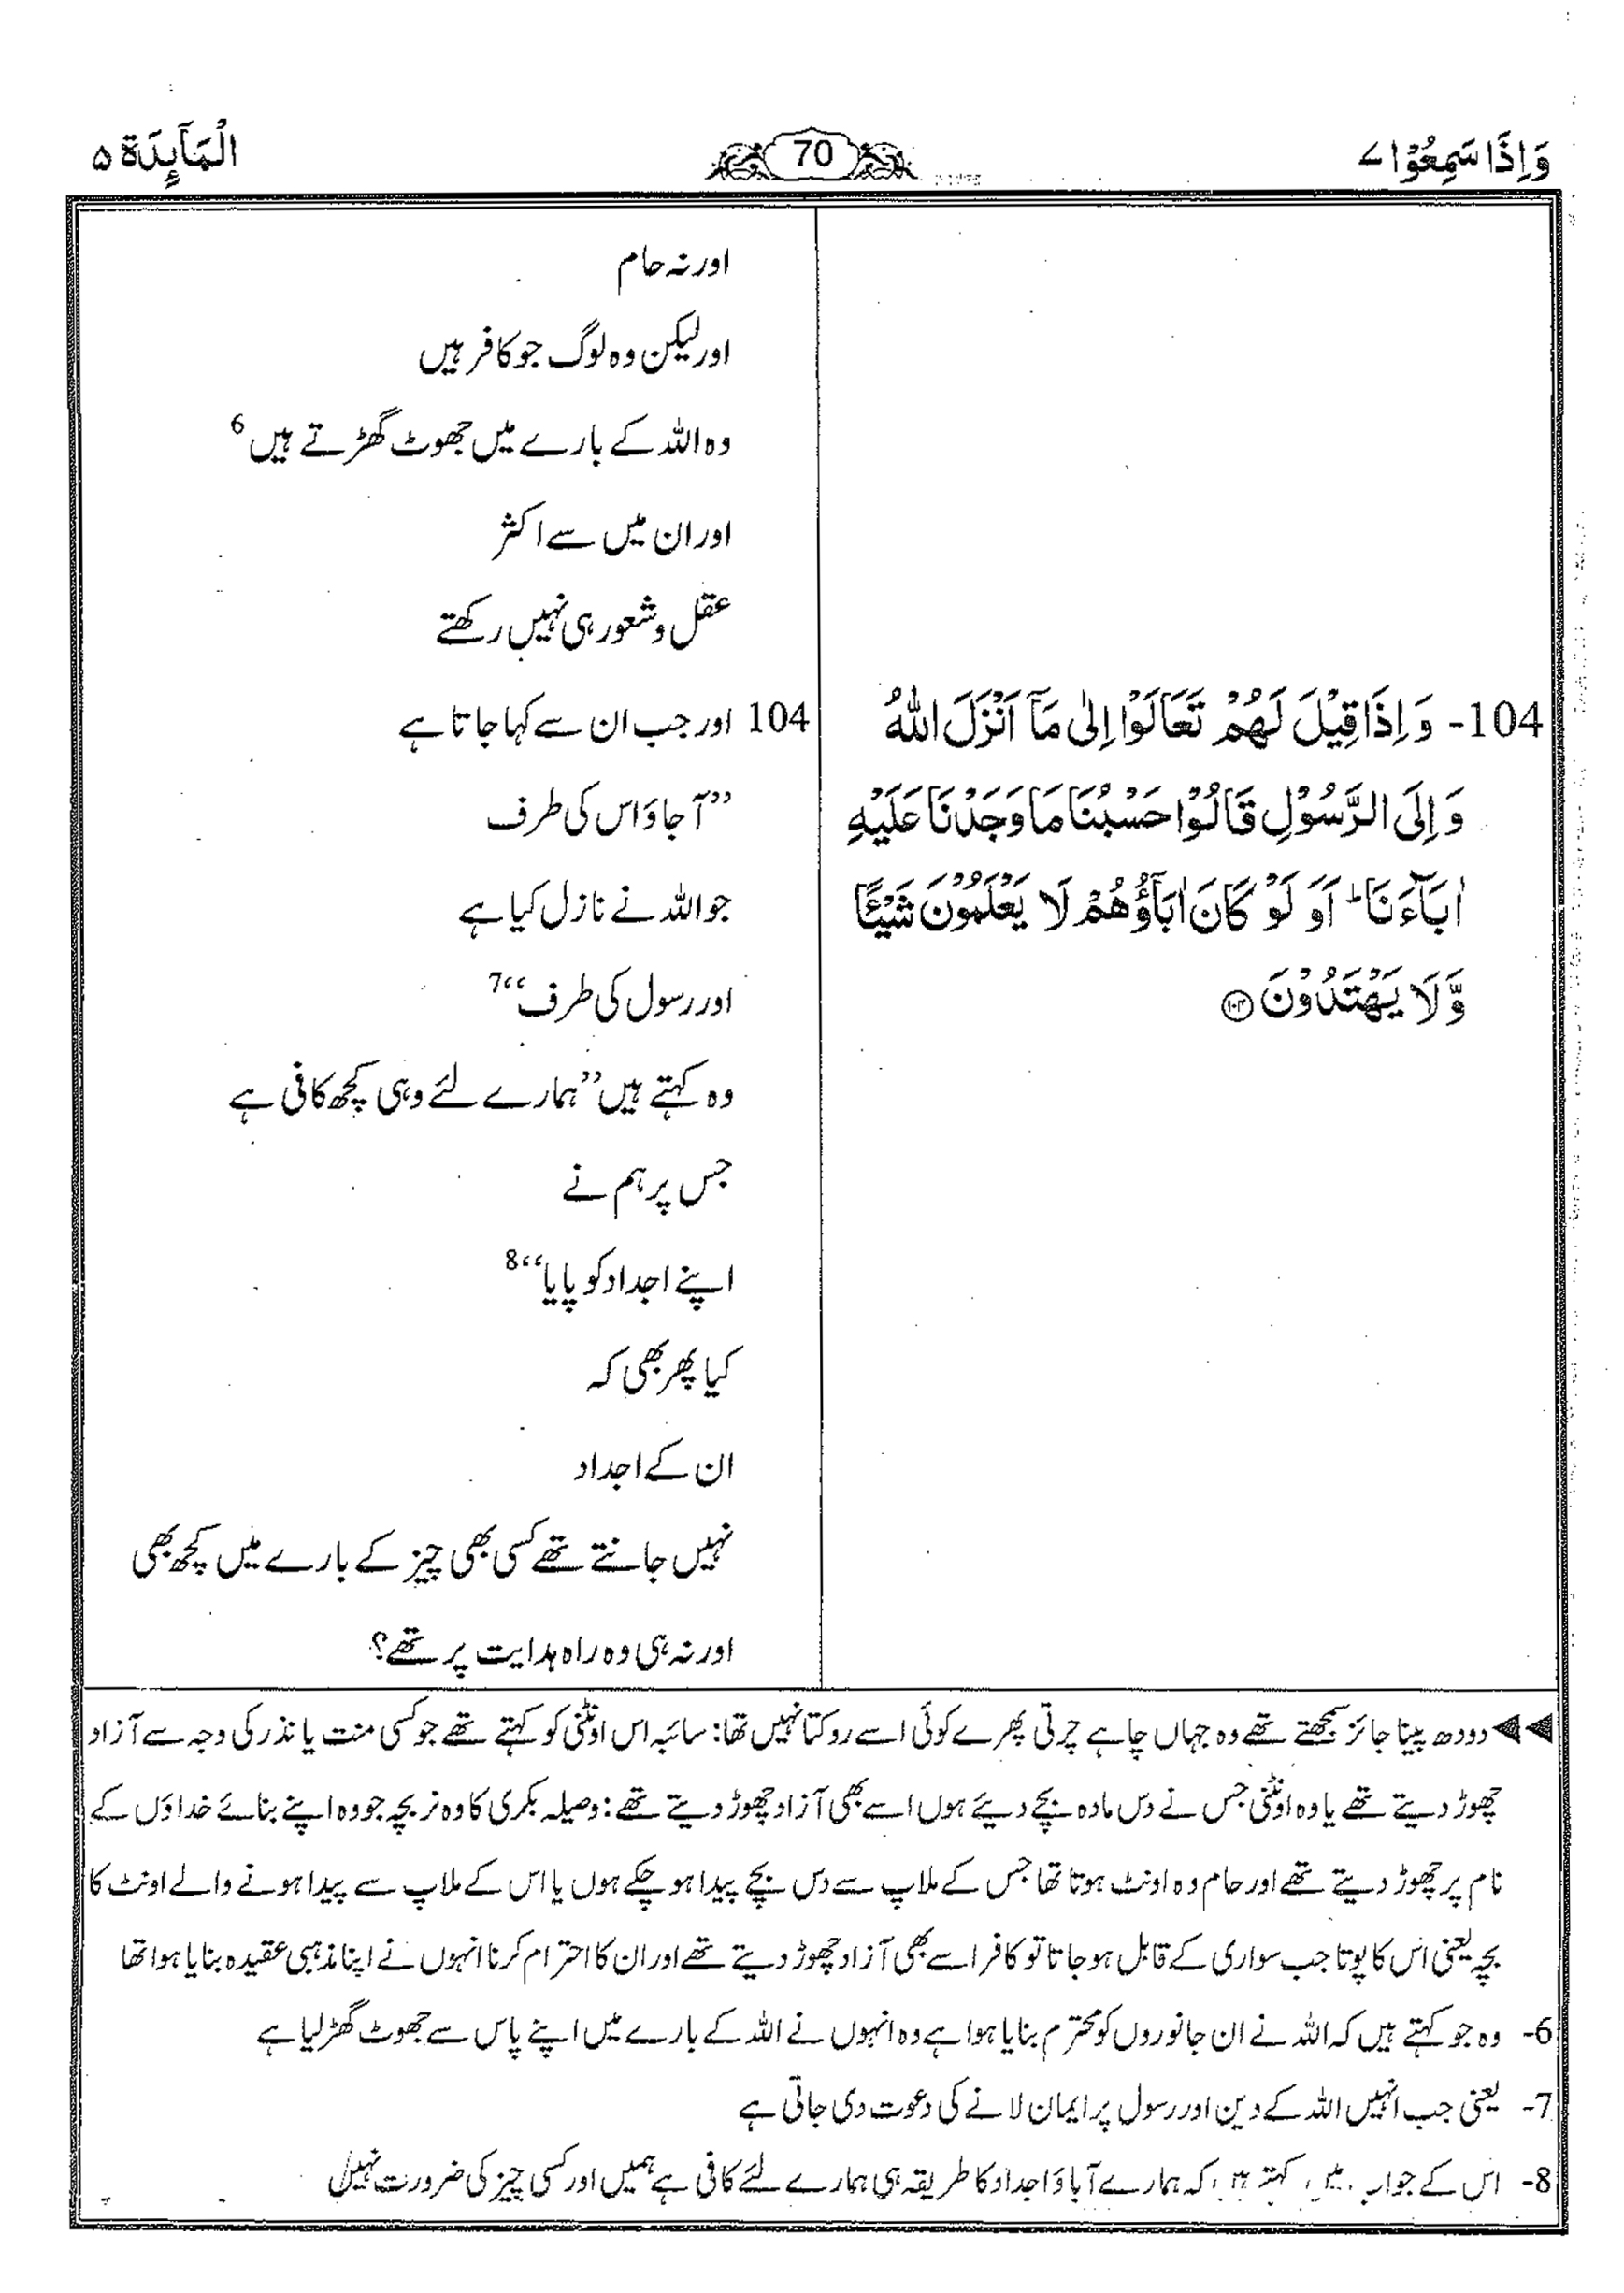 وَاِذَا سَمِعُوْا ۷
70
الْمَآئِدَة ۵
اور نہ حام
اور لیکن وہ لوگ جو کافر ہیں
وہ اللہ کے بارے میں جھوٹ گھڑتے ہیں 6
اور ان میں سے اکثر
عقل و شعور ہی نہیں رکھتے
104- وَ اِذَا قِيْلَ لَهُمْ تَعَالَوْا اِلٰى مَآ اَنْزَلَ اللّٰهُ
وَ اِلَى الرَّسُوْلِ قَالُوْا حَسْبُنَا مَا وَجَدْنَا عَلَيْهِ
اٰبَآءَنَا ؕ اَوَ لَوْ كَانَ اٰبَآؤُهُمْ لَا يَعْلَمُوْنَ شَيْئًا
وَّ لَا يَهْتَدُوْنَ ﴿۱۰۴﴾
104 اور جب ان سے کہا جاتا ہے
”آ جاؤ اس کی طرف
جو اللہ نے نازل کیا ہے
اور رسول کی طرف“ 7
وہ کہتے ہیں ”ہمارے لئے وہی کچھ کافی ہے
جس پر ہم نے
اپنے اجداد کو پایا“ 8
کیا پھر بھی کہ
ان کے اجداد
نہیں جانتے تھے کسی بھی چیز کے بارے میں کچھ بھی
اور نہ ہی وہ راہ ہدایت پر تھے؟
◄◄ دودھ پینا جائز سمجھتے تھے وہ جہاں چاہے چرتی پھرے کوئی اسے روکتا نہیں تھا: سائبہ اس اونٹنی کو کہتے تھے جو کسی منت یا نذر کی وجہ سے آزاد
چھوڑ دیتے تھے یا وہ اونٹنی جس نے دس مادہ بچے دیئے ہوں اسے بھی آزاد چھوڑ دیتے تھے: وصیلہ بکری کا وہ نر بچہ جو وہ اپنے بنائے خداؤں کے
نام پر چھوڑ دیتے تھے اور حام وہ اونٹ ہوتا تھا جس کے ملاپ سے دس بچے پیدا ہو چکے ہوں یا اس کے ملاپ سے پیدا ہونے والے اونٹ کا
بچہ یعنی اس کا پوتا جب سواری کے قابل ہو جاتا تو کافر اسے بھی آزاد چھوڑ دیتے تھے اور ان کا احترام کرنا انہوں نے اپنا مذہبی عقیدہ بنایا ہوا تھا
6- وہ جو کہتے ہیں کہ اللہ نے ان جانوروں کو محترم بنایا ہوا ہے وہ انہوں نے اللہ کے بارے میں اپنے پاس سے جھوٹ گھڑ لیا ہے
7- یعنی جب انہیں اللہ کے دین اور رسول پر ایمان لانے کی دعوت دی جاتی ہے
8- اس کے جواب میں کہتے ہیں کہ ہمارے آباؤ اجداد کا طریقہ ہی ہمارے لئے کافی ہے ہمیں اور کسی چیز کی ضرورت نہیں